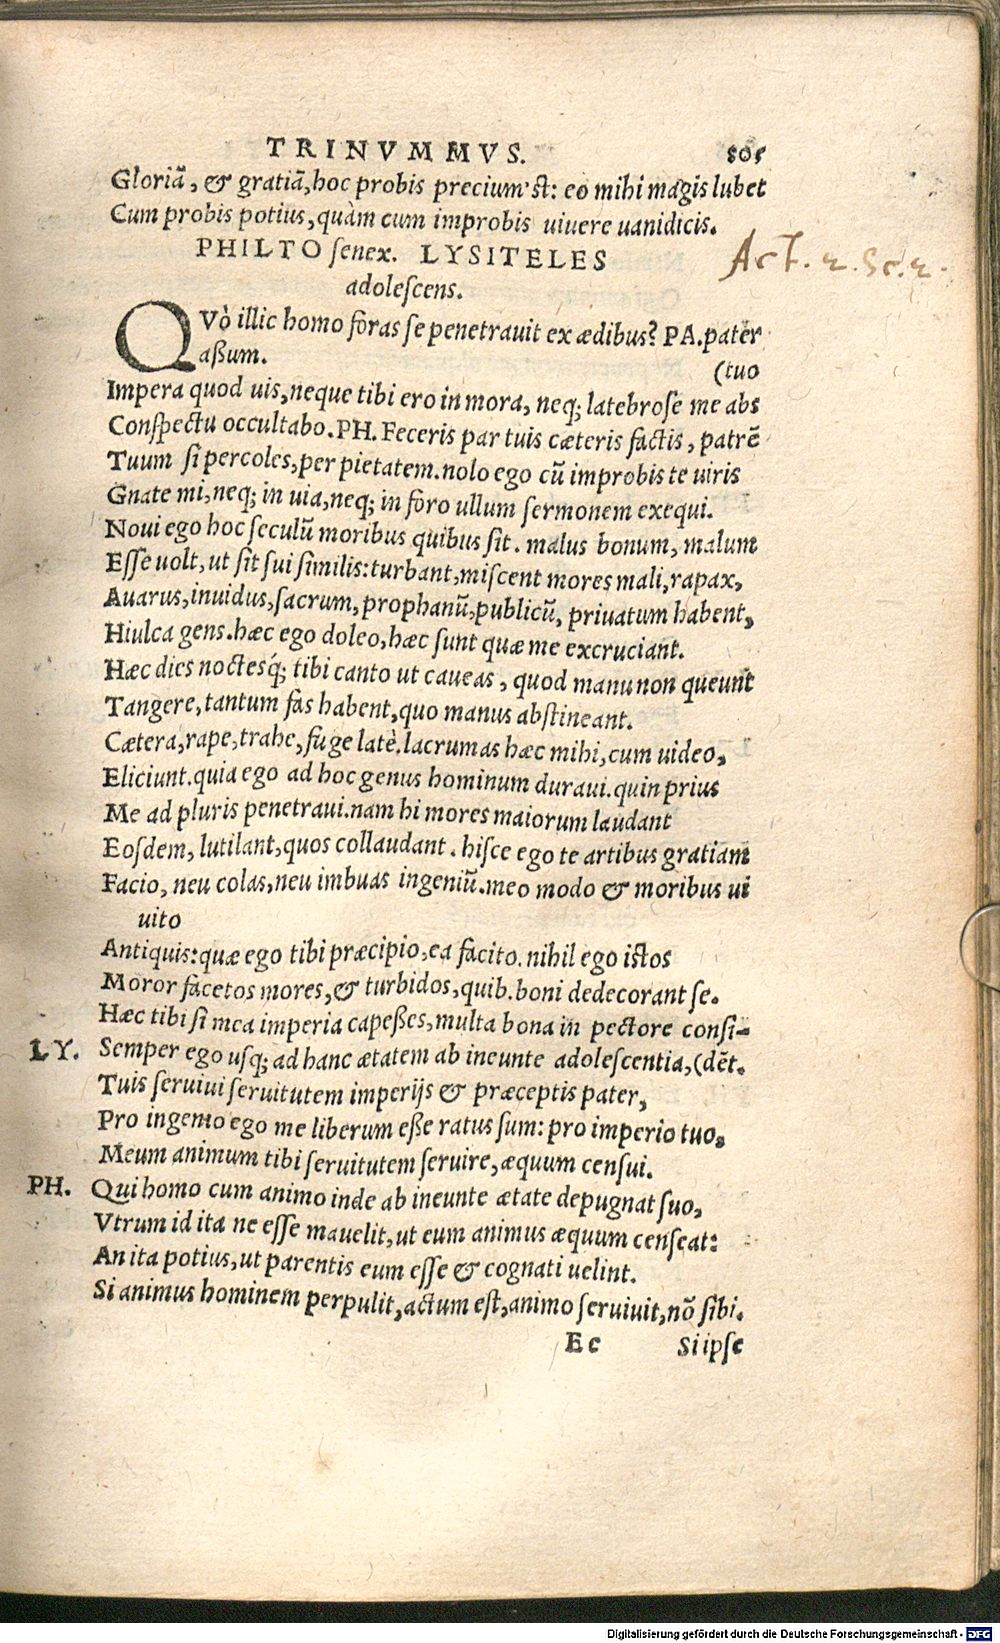 TRINVMMVS. 505
Gloriã, & gratiã, hoc probis precium'st: eo mihi magis lubet
Cum probis potius, quàm cum improbis uiuere uanidicis.
PHILTO ſenex. LYSITELES
adoleſcens.
Act. 2. Sc. 2.
QVò illic homo foras ſe penetrauit ex ædibus? PA. pater
aßum. (tuo
Impera quod uis, neque tibi ero in mora, neq; latebroſe me abs
Conſpectu occultabo. PH. Feceris par tuis cæteris factis, patrẽ
Tuum ſi percoles, per pietatem. nolo ego cũ improbis te uiris
Gnate mi, neq; in uia, neq; in foro ullum ſermonem exequi.
Noui ego hoc ſeculũ moribus quibus ſit. malus bonum, malum
Eſſe uolt, ut ſit ſui ſimilis: turbant, miſcent mores mali, rapax,
Auarus, inuidus, ſacrum, prophanũ, publicũ, priuatum habent,
Hiulca gens. hæc ego doleo, hæc ſunt quæ me excruciant.
Hæc dies noctesq́; tibi canto ut caueas, quod manu non queunt
Tangere, tantum fas habent, quo manus abſtineant.
Cætera, rape, trahe, fuge latè. lacrumas hæc mihi, cum uideo,
Eliciunt. quia ego ad hoc genus hominum duraui. quin prius
Me ad pluris penetraui. nam hi mores maiorum laudant
Eoſdem, lutilant, quos collaudant. hiſce ego te artibus gratiam
Facio, neu colas, neu imbuas ingeniũ. meo modo & moribus ui
uito
Antiquis: quæ ego tibi præcipio, ea facito. nihil ego iſtos
Moror facetos mores, & turbidos, quib. boni dedecorant ſe.
Hæc tibi ſi mea imperia capeßes, multa bona in pectore conſi-
LY. Semper ego uſq; ad hanc ætatem ab ineunte adoleſcentia, (dẽt.
Tuis ſeruiui ſeruitutem imperijs & præceptis pater,
Pro ingenio ego me liberum eße ratus ſum: pro imperio tuo,
Meum animum tibi ſeruitutem ſeruire, æquum cenſui.
PH. Qui homo cum animo inde ab ineunte ætate depugnat ſuo,
Vtrum id ita ne eſſe mauelit, ut eum animus æquum cenſeat:
An ita potius, ut parentis eum eſſe & cognati uelint.
Si animus hominem perpulit, actum eſt, animo ſeruiuit, nõ ſibi.
Ee Si ipſe
Digitalisierung gefördert durch die Deutsche Forschungsgemeinschaft - DFG